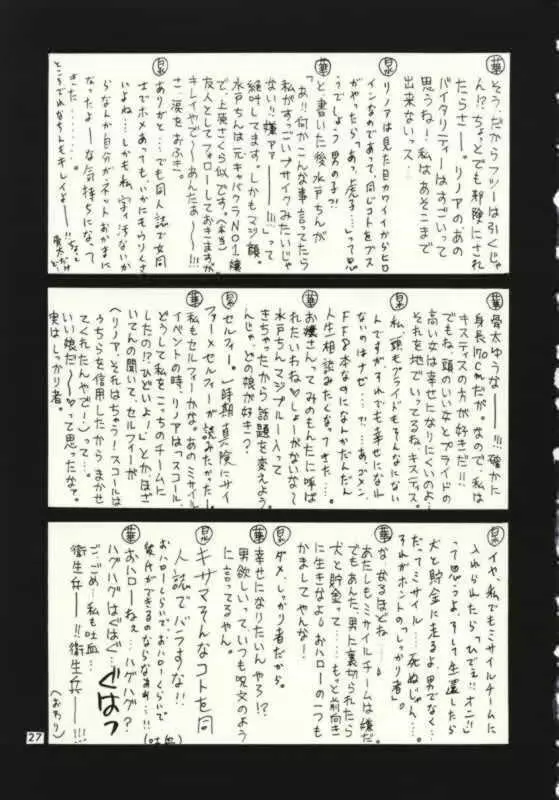 華 そう、だからフツーは引くじゃ
ん!?ちょっとでも邪険にされ
たらさー。リノアのあの
バイタリティーはすごいって
思うね!私はあそこまで
出来ないっス…
晃 リノアは見た目カワイイからヒロ
インなのであって、同じコトをブス
がやったら「あっ虎子…」って思
うでしょう男の子?!
華 と書いた後水戸ちんが
「あ!!何かこんな事言ってたら
私がすっごいブサイクみたいじゃ
ない!!嫌アァーーー!!!」って
絶叫してます。しかもマジ顔。
水戸ちんは元キャバクラNO1嬢
で、上原さくら似です。(本当)
友人としてフォローしておきますが
キレイやで〜あんたぁ〜!!!
さ、涙をおふき。
晃 ありがと…でも同人誌で女同
士でホメあっても、いかにもうりくさ
いよね…しかも私字汚ないか
らなんか自分がネットおかまに
なったよーな気持ちになって
きた…
ところでれなちんもキレイよーー!!
華 骨太ゆうなーー!!!確かに
身長170cmだが。なので、私は
キスティスの方が好きだ!!
でもね、頭のいい女とプライドの
高い女は幸せになりにくいのよ…
それを地でいってるね、キスティス。
晃 私、頭もプライドもそんなにない
んですがそれでも幸せになれ
ないのはナゼ…?…あっゴメン
FF8本なのになんかだんだん
人生相談みたくなってきた…。
お嬢さんってみのもんたに呼ば
れたいわね♡しょーがないなぁ〜
華 水戸ちんマジブルー入って
きちゃったから話題を変えよう。
んじゃ、どの娘が好き?
晃 セルフィー。一時期真険にサイ
ファー×セルフィーが読みたかった…
華 私もセルフィーかな。あのミサイル
イベントの時、リノアは「スコール、
どうして私をこっちのチームに
したの!?ひどいよー!」とかほざ
いてんの聞いて、セルフィーが
「リノア、それはちゃう!スコールは
うちらを信用したからまかせ
てくれたんやでー!」って…。
いい娘だ〜♡って思ったなァ。
実はしっかり者。
晃 イヤ、私でもミサイルチームに
入れられたら「ひでぇ!!オニ!!」
って思うよ。そして生還したら
犬と貯金に走るよ、男でなく…
だってミサイル…死ぬじゃん…。
それがホントの“しっかり者”。
華 な、なるほどね…
あたしもミサイルチームは嫌だ。
でもあんた、男に裏切られたら
犬と貯金って……もっと前向き
に生きなよ!おハローの一つも
かましてやんな!
晃 ダメ。しっかり者だから。
華 幸せになりたいんやろ!?
男欲しいって、いつも呪文のよう
に言ってるやん。
晃 キサマそんなコトを同
人誌でバラすな!!
おハローしらいでおハローくらいで
彼氏ができるのならなぁぁ…!!(吐血)
華 おハローねぇ…ハグハグ?
ハグハグはぐはぐ…ぐはっ
ごっごめ…私も吐血…
衛生兵ーー!!衛生兵ーー!!!
(おわり)
27